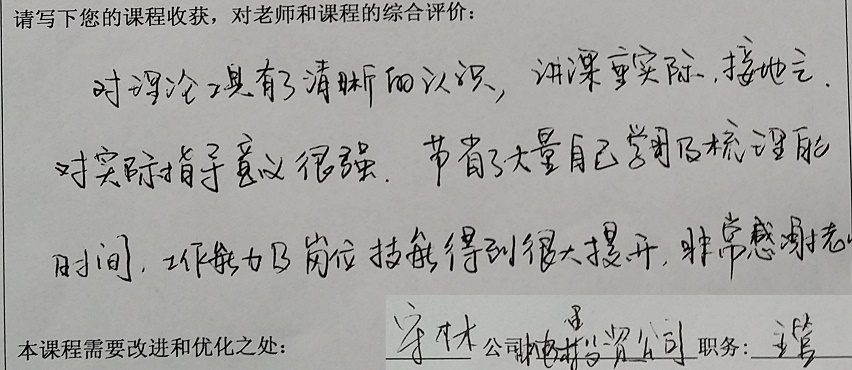 请写下您的课程收获，对老师和课程的综合评价：
对理论工具有了清晰的认识，讲课重实际，接地气.
对实际指导意义很强. 节省了大量自己学习及梳理的
时间，工作能力及岗位技能得到很大提升，非常感谢老
本课程需要改进和优化之处：
林 公司 投资公司 职务：主管